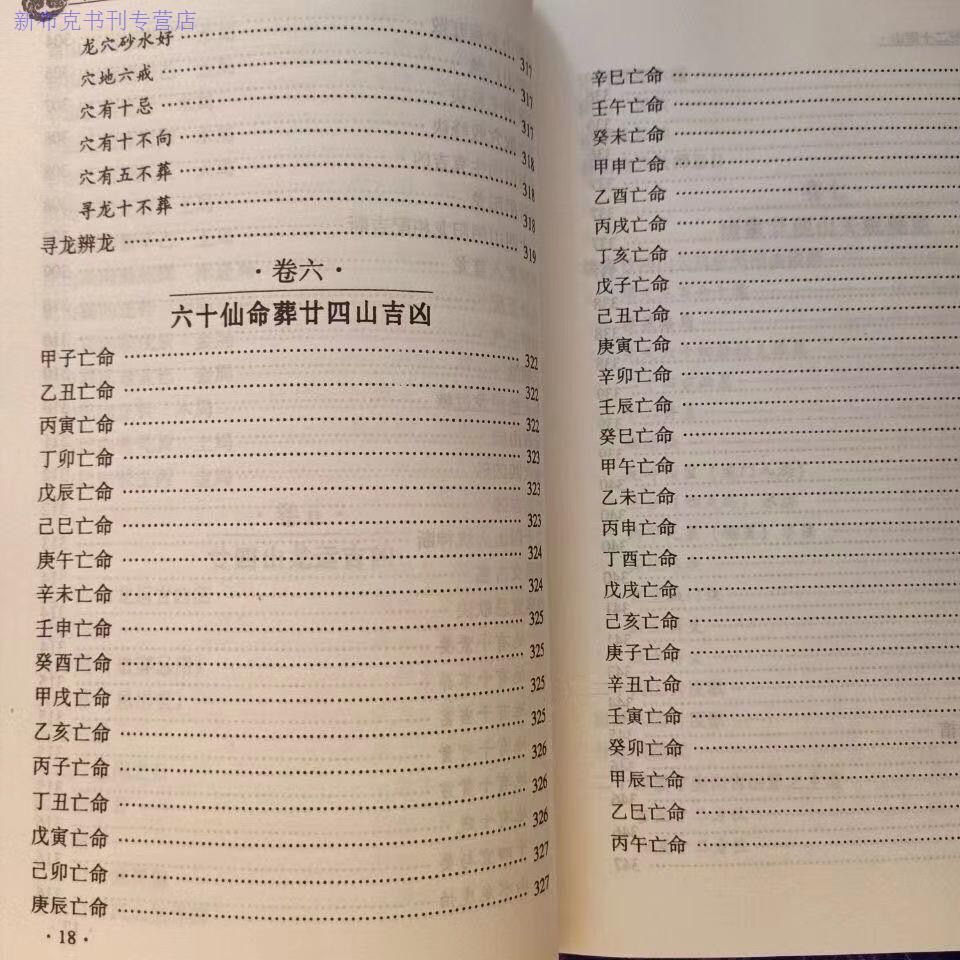 新布克书刊专营店
龙穴砂水好 317
穴地六戒 317
穴有十忌 317
穴有十不向 318
穴有五不葬 318
寻龙十不葬 318
寻龙辨龙 319
·卷六·
六十仙命葬廿四山吉凶
甲子亡命 322
乙丑亡命 322
丙寅亡命 322
丁卯亡命 323
戊辰亡命 323
己巳亡命 323
庚午亡命 324
辛未亡命 324
壬申亡命 325
癸酉亡命 325
甲戌亡命 325
乙亥亡命 325
丙子亡命 326
丁丑亡命 326
戊寅亡命 326
己卯亡命 327
庚辰亡命 327
·18·
辛巳亡命
壬午亡命
癸未亡命
甲申亡命
乙酉亡命
丙戌亡命
丁亥亡命
戊子亡命
己丑亡命
庚寅亡命
辛卯亡命
壬辰亡命
癸巳亡命
甲午亡命
乙未亡命
丙申亡命
丁酉亡命
戊戌亡命
己亥亡命
庚子亡命
辛丑亡命
壬寅亡命
癸卯亡命
甲辰亡命
乙巳亡命
丙午亡命